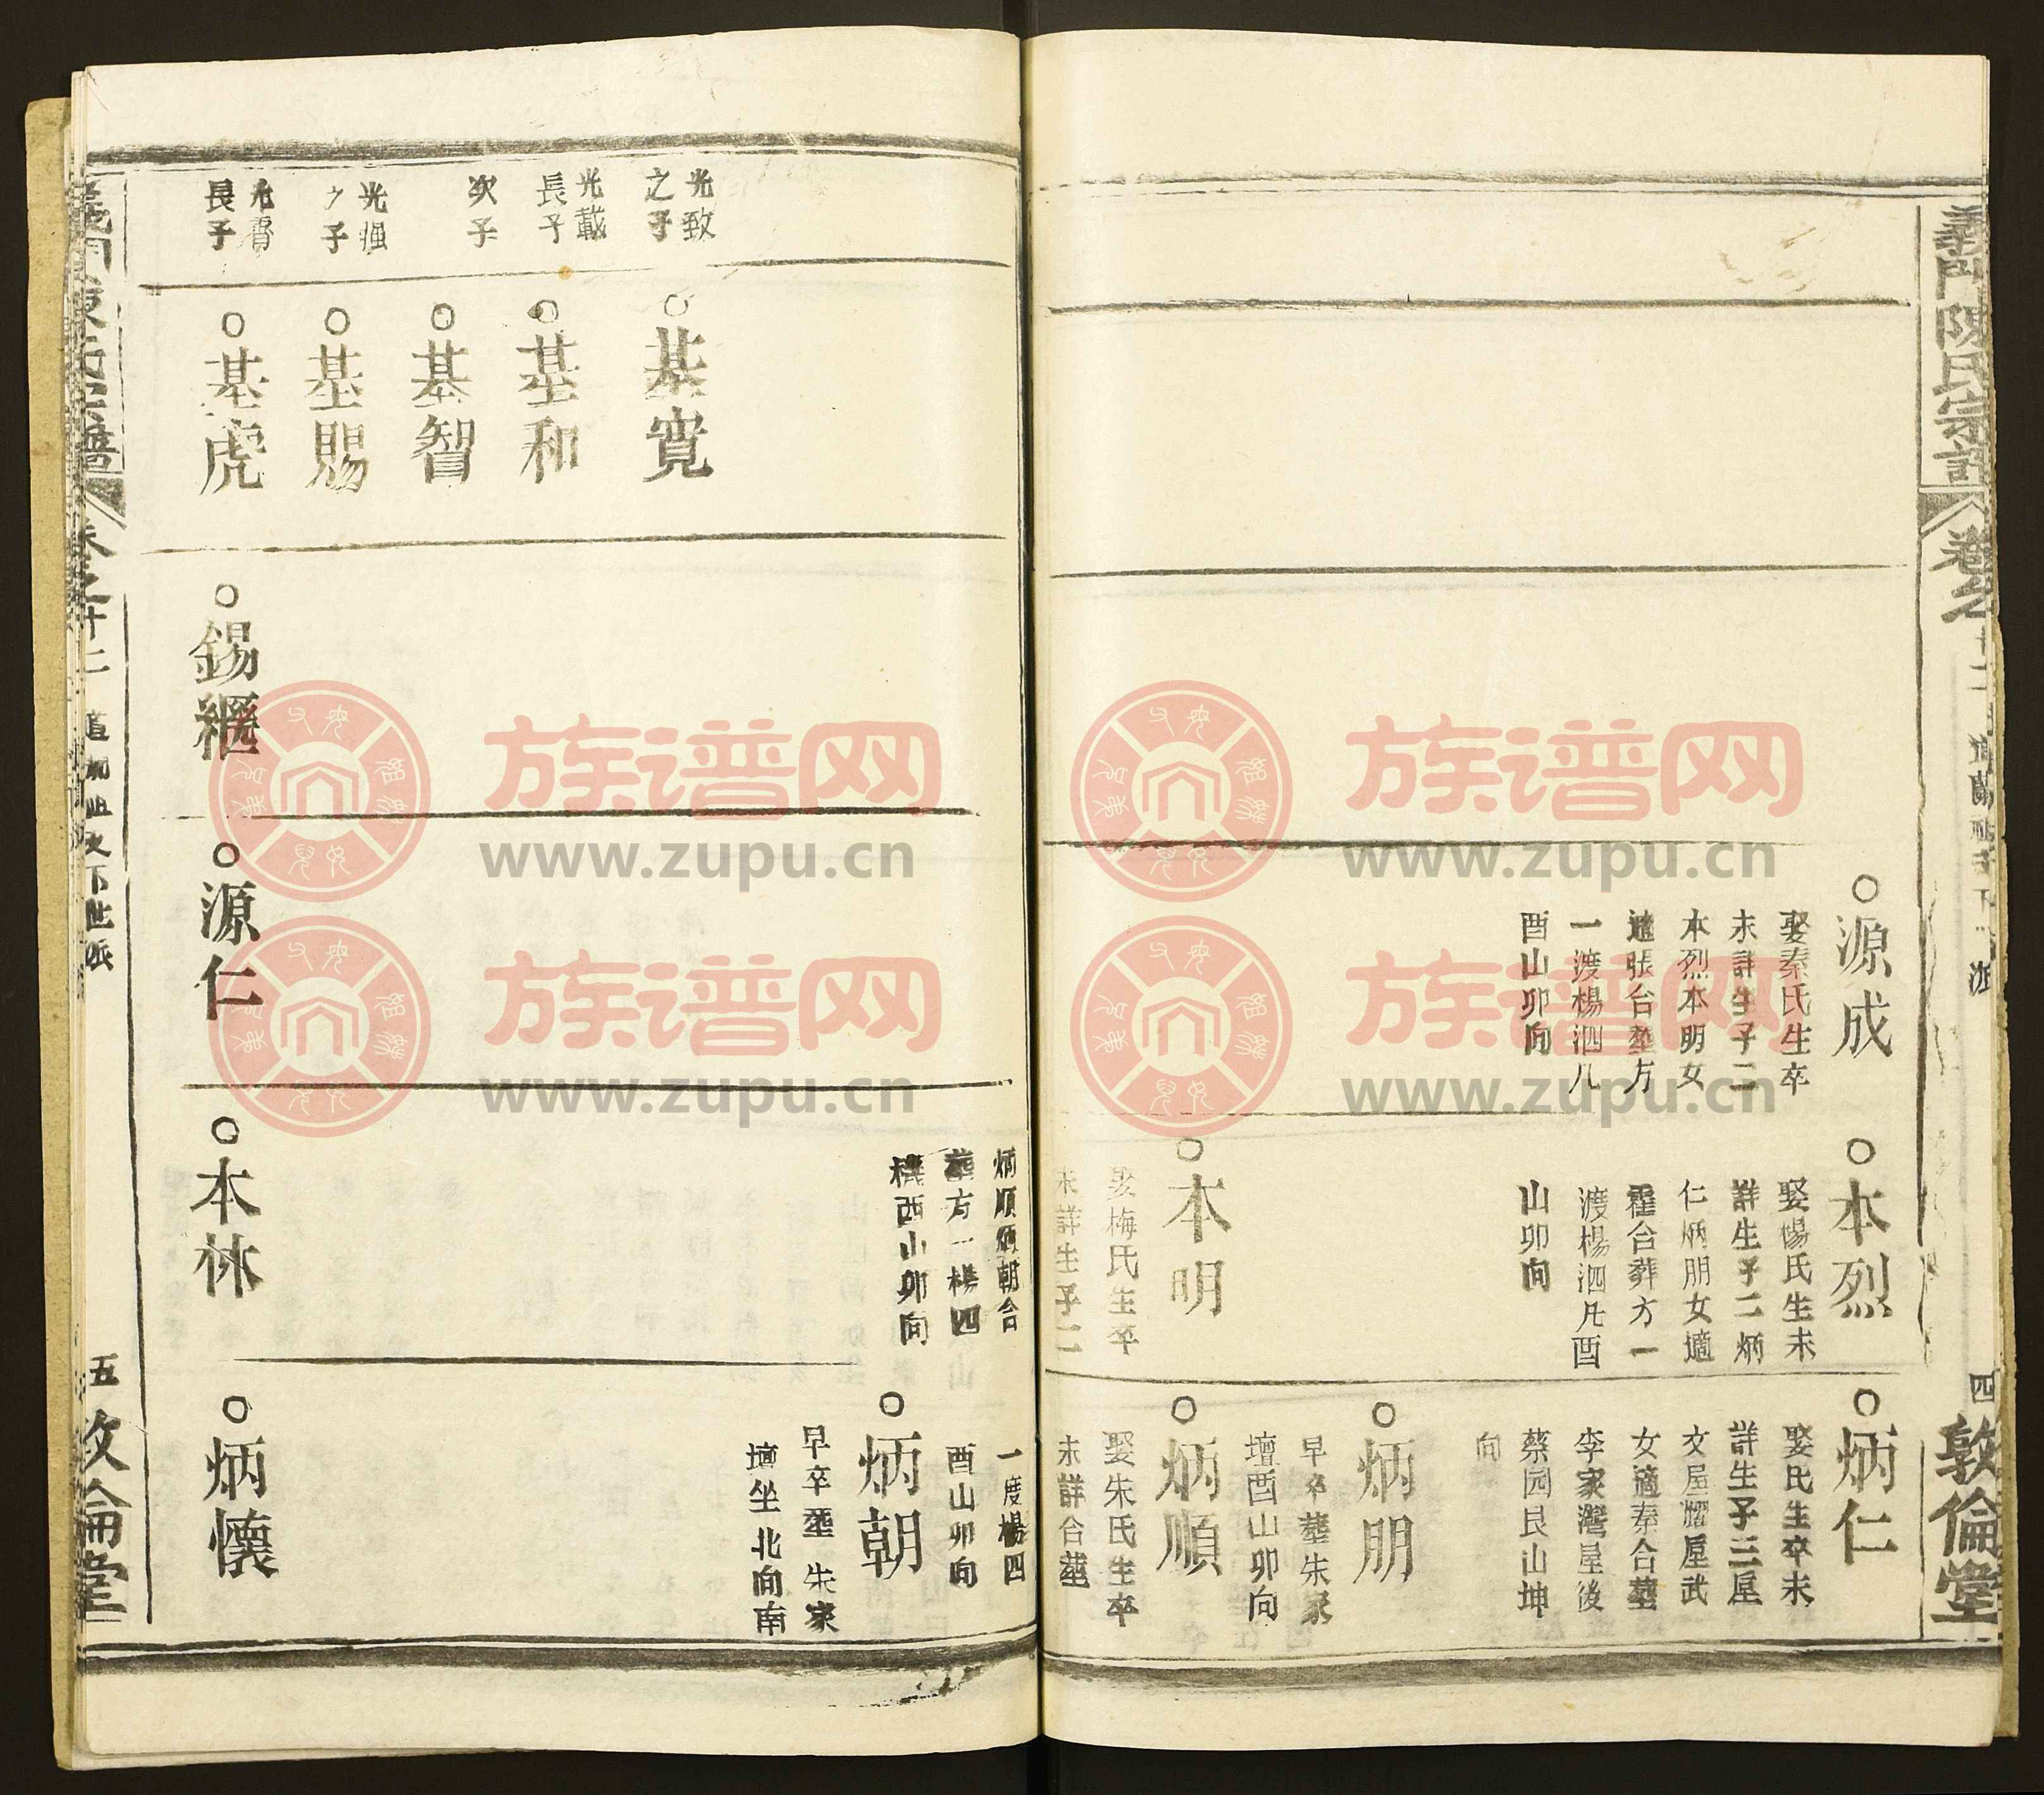 義門陳氏宗譜
卷之十二
四
敦倫堂
源成
娶秦氏生卒
未詳生子二
本烈本明女
適張合塟方
一渡楊泗凡
酉山卯向
本烈
娶楊氏生未
詳生子二炳
仁炳朋女適
霍合葬方一
渡楊泗凡酉
山卯向
本明
娶梅氏生卒
未詳生子二
炳仁
娶氏生卒未
詳生子三屋
文屋耀屋武
女適秦合塟
李家灣屋後
蔡园艮山坤
向
炳朋
早卒塟朱家
壇酉山卯向
炳順
娶朱氏生卒
未詳合塟
炳順炳朝合
塟方一楊四
酉山卯向
一度楊四
酉山卯向
炳朝
早卒塟朱家
壇坐北向南
光致
之子
基寛
光載
長子
基和
次子
基智
之子
基賜
長子
基虎
錫綱
源仁
本林
炳懷
義門陳氏宗譜
卷之十二
五
敦倫堂
族谱网
www.zupu.cn
族谱网
www.zupu.cn
族谱网
www.zupu.cn
族谱网
www.zupu.cn